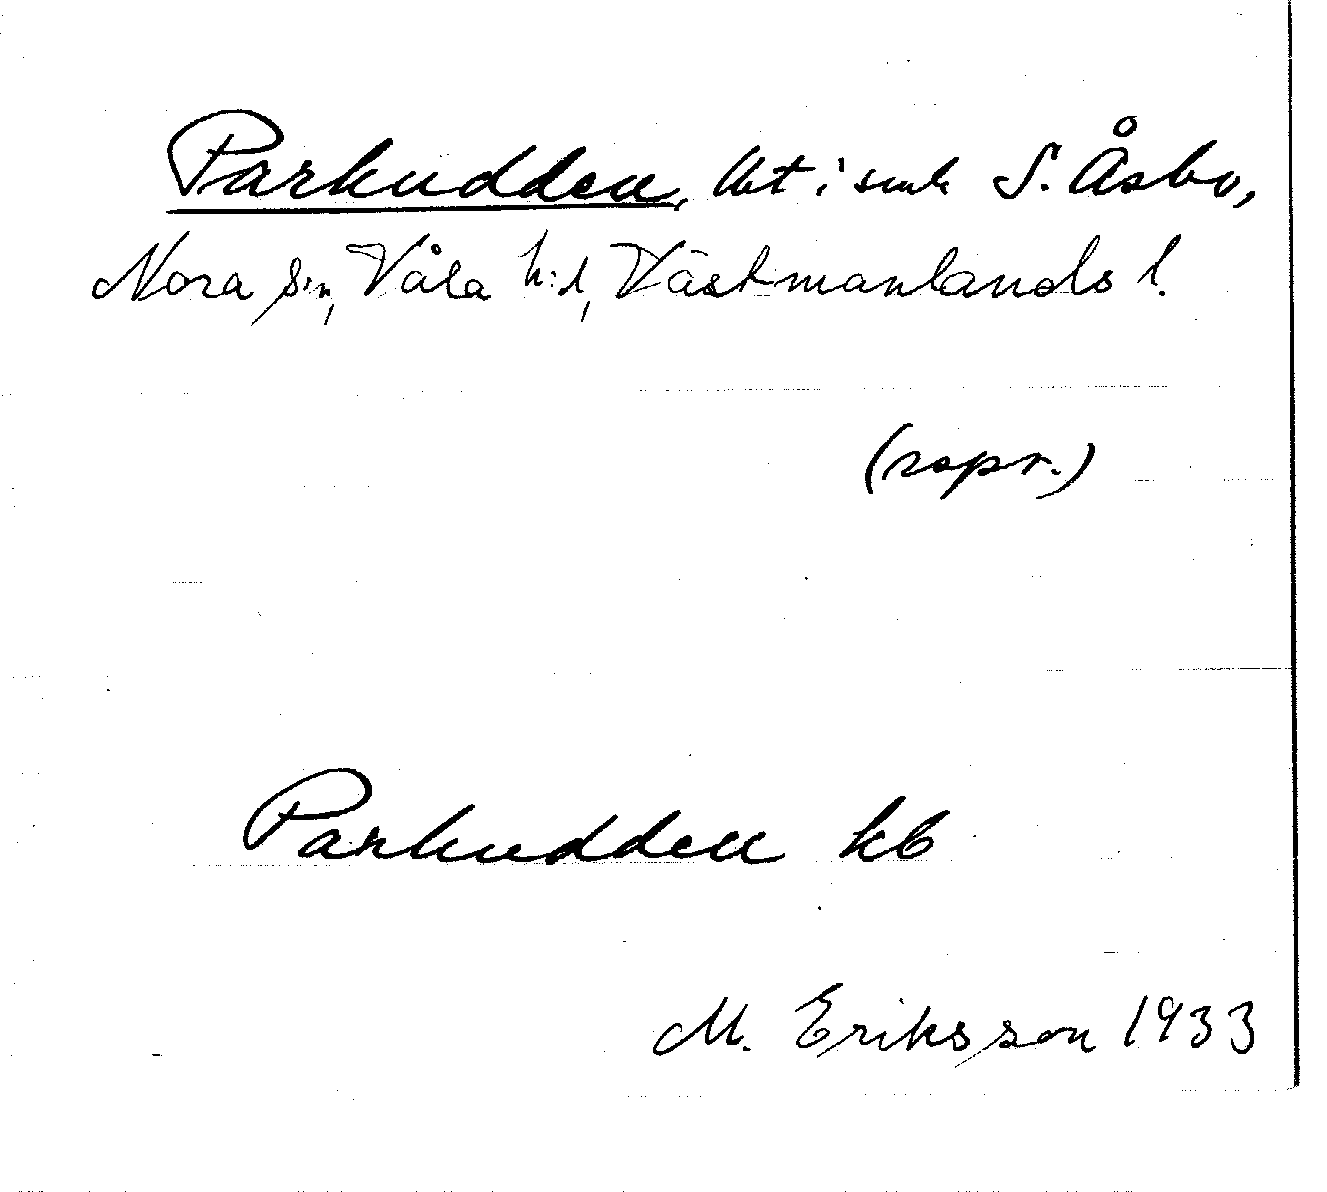 Parkudden, lht i smh S. Åsbo,
Nora s:n, Våla h:d, Västmanlands l.
(sopr.)
Parkudden kb
M. Eriksson 1933